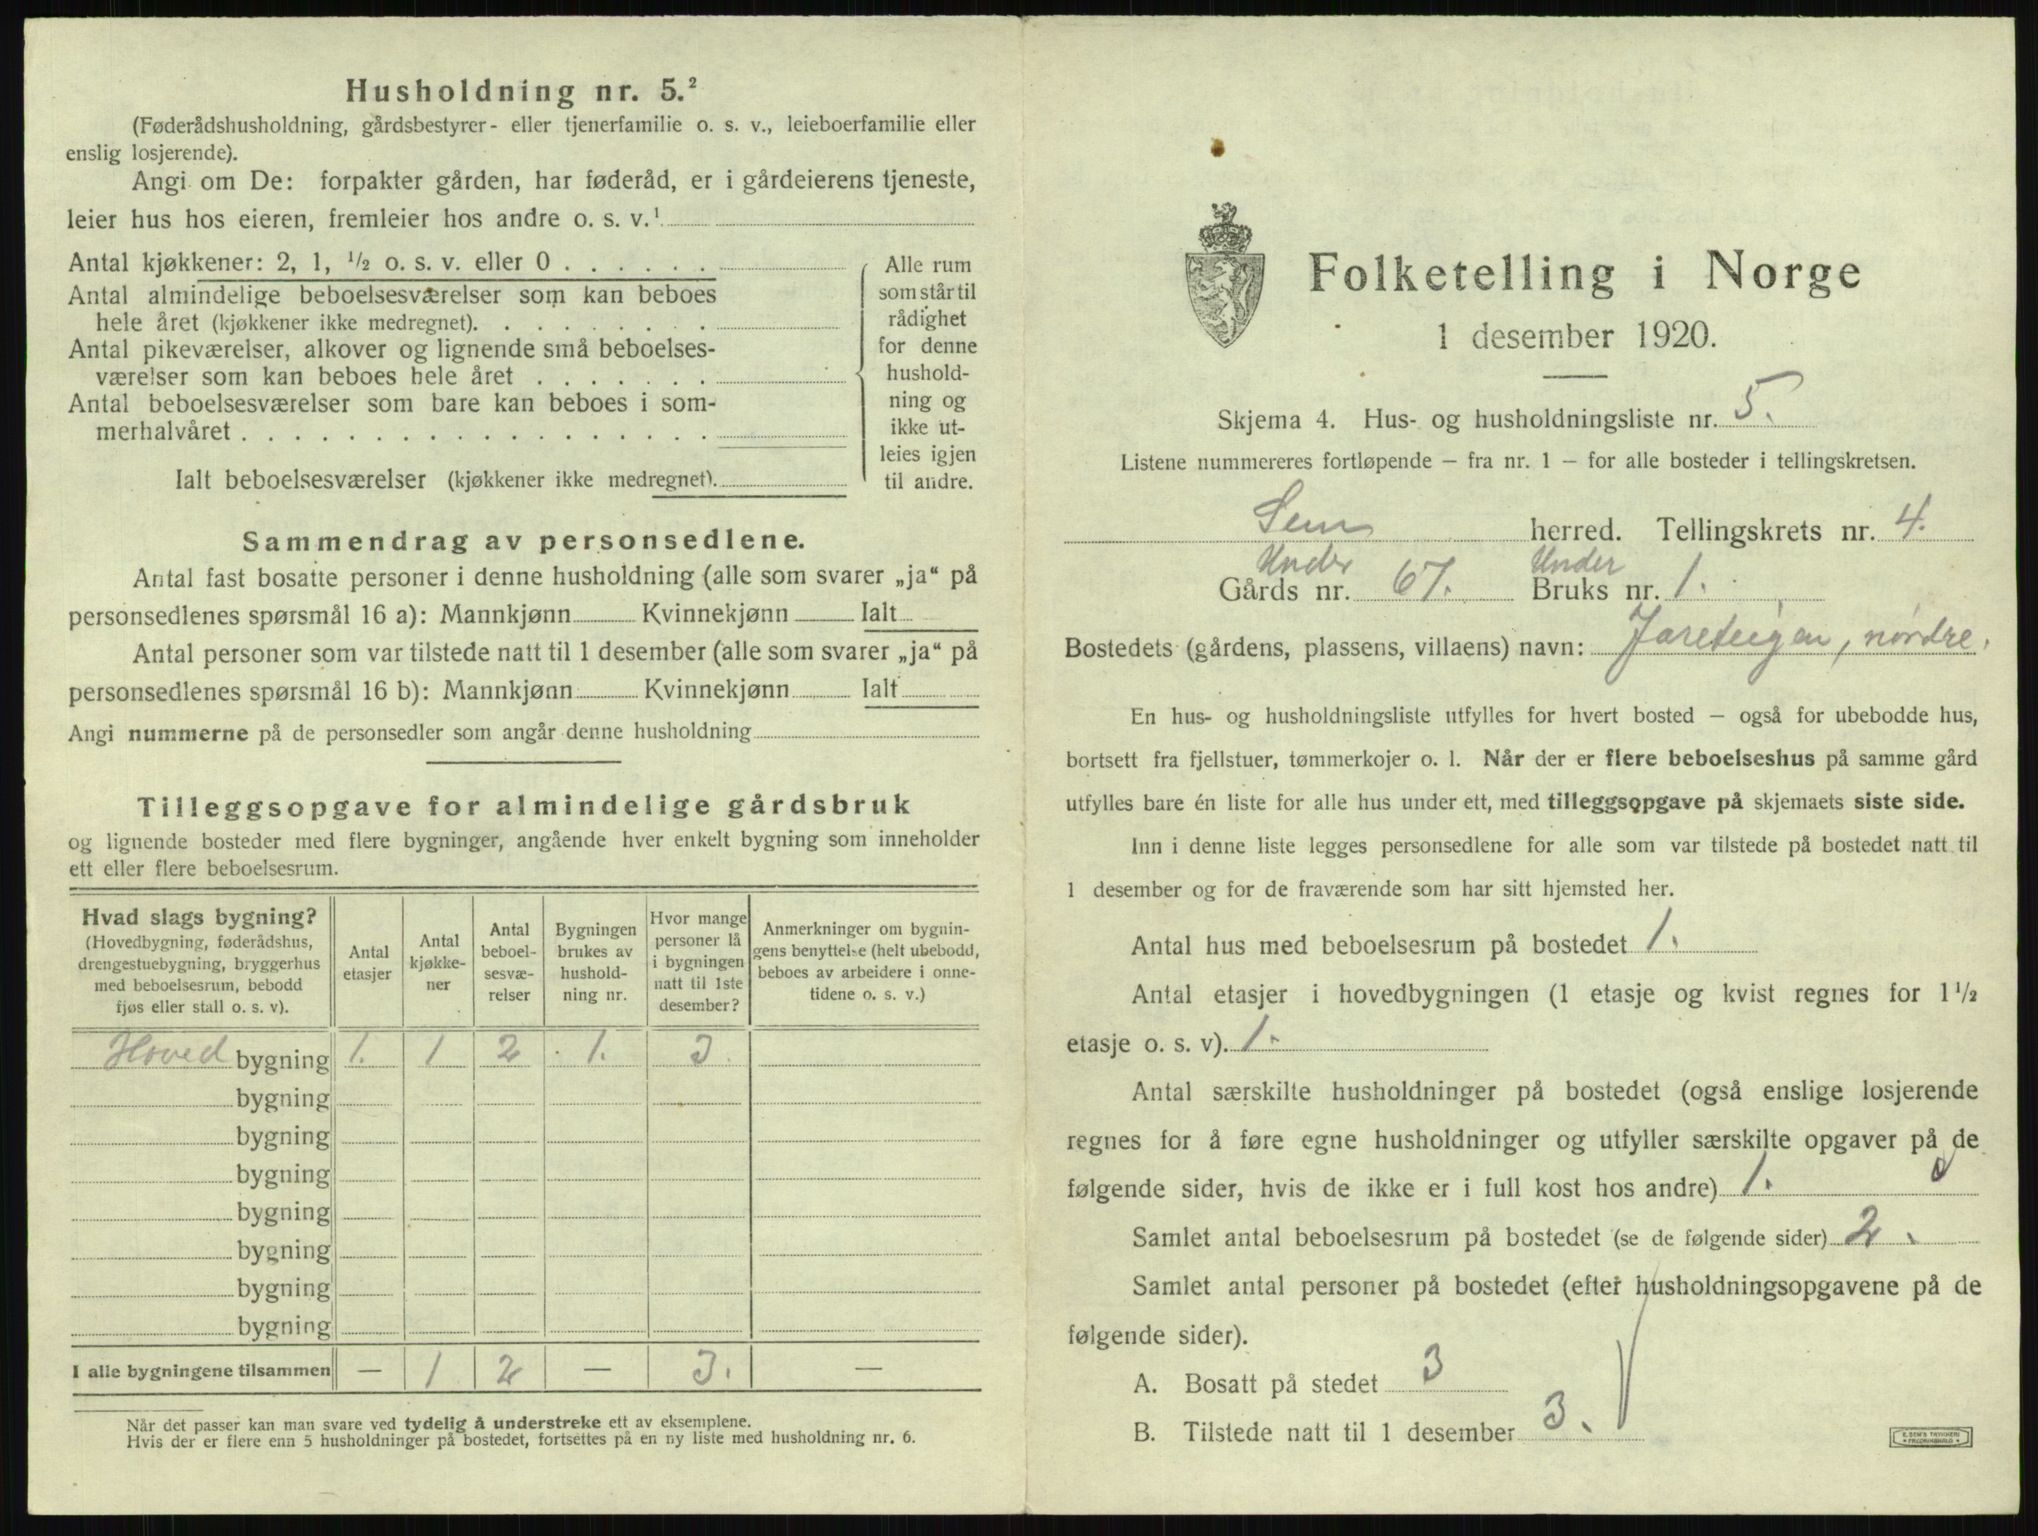 Husholdning nr. 5.²
(Føderådshusholdning, gårdsbestyrer- eller tjenerfamilie o. s. v., leieboerfamilie eller
enslig losjerende).
Angi om De: forpakter gården, har føderåd, er i gårdeierens tjeneste,
leier hus hos eieren, fremleier hos andre o. s. v.¹
Antal kjøkkener: 2, 1, ½ o. s. v. eller 0 . . . . . .
Antal almindelige beboelsesværelser som kan beboes
hele året (kjøkkener ikke medregnet). . . . . . . . .
Antal pikeværelser, alkover og lignende små beboelses-
værelser som kan beboes hele året . . . . . . .
Antal beboelsesværelser som bare kan beboes i som-
merhalvåret . . . . . . . . . . . . . . . . . .
Ialt beboelsesværelser (kjøkkener ikke medregnet).
Alle rum
som står til
rådighet
for denne
hushold-
ning og
ikke ut-
leies igjen
til andre.
Sammendrag av personsedlene.
Antal fast bosatte personer i denne husholdning (alle som svarer „ja“ på
personsedlenes spørsmål 16 a): Mannkjønn Kvinnekjønn Ialt
Antal personer som var tilstede natt til 1 desember (alle som svarer „ja“ på
personsedlenes spørsmål 16 b): Mannkjønn Kvinnekjønn Ialt
Angi nummerne på de personsedler som angår denne husholdning
Tilleggsopgave for almindelige gårdsbruk
og lignende bosteder med flere bygninger, angående hver enkelt bygning som inneholder
ett eller flere beboelsesrum.
Hvad slags bygning?
(Hovedbygning, føderådshus,
drengestuebygning, bryggerhus
med beboelsesrum, bebodd
fjøs eller stall o. s. v).
Antal
etasjer
Antal
kjøkke-
ner
Antal
beboel-
sesvæ-
relser
Bygningen
brukes av
hushold-
ning nr.
Hvor mange
personer lå
i bygningen
natt til 1ste
desember?
Anmerkninger om bygnin-
gens benyttelse (helt ubebodd,
beboes av arbeidere i onne-
tidene o. s. v.)
Hoved bygning 1. 1 2 1. 3.
bygning
bygning
bygning
bygning
bygning
bygning
bygning
I alle bygningene tilsammen — 1 2 — 3. —
Når det passer kan man svare ved tydelig å understreke ett av eksemplene.
Hvis der er flere enn 5 husholdninger på bostedet, fortsettes på en ny liste med husholdning nr. 6.
Folketelling i Norge
1 desember 1920.
Skjema 4. Hus- og husholdningsliste nr. 5.
Listene nummereres fortløpende — fra nr. 1 — for alle bosteder i tellingskretsen.
Sem herred. Tellingskrets nr. 4.
Under Under
Gårds nr. 67. Bruks nr. 1.
Bostedets (gårdens, plassens, villaens) navn: Jareteigen, nørdre.
En hus- og husholdningsliste utfylles for hvert bosted — også for ubebodde hus,
bortsett fra fjellstuer, tømmerkojer o. l. Når der er flere beboelseshus på samme gård
utfylles bare én liste for alle hus under ett, med tilleggsopgave på skjemaets siste side.
Inn i denne liste legges personsedlene for alle som var tilstede på bostedet natt til
1 desember og for de fraværende som har sitt hjemsted her.
Antal hus med beboelsesrum på bostedet 1.
Antal etasjer i hovedbygningen (1 etasje og kvist regnes for 1½
etasje o. s. v). 1.
Antal særskilte husholdninger på bostedet (også enslige losjerende
regnes for å føre egne husholdninger og utfyller særskilte opgaver på de
følgende sider, hvis de ikke er i full kost hos andre) 1.
Samlet antal beboelsesrum på bostedet (se de følgende sider) 2.
Samlet antal personer på bostedet (efter husholdningsopgavene på de
følgende sider).
A. Bosatt på stedet 3
B. Tilstede natt til 1 desember 3.
E. SEM'S TRYKKERI
FREDRIKSHALD